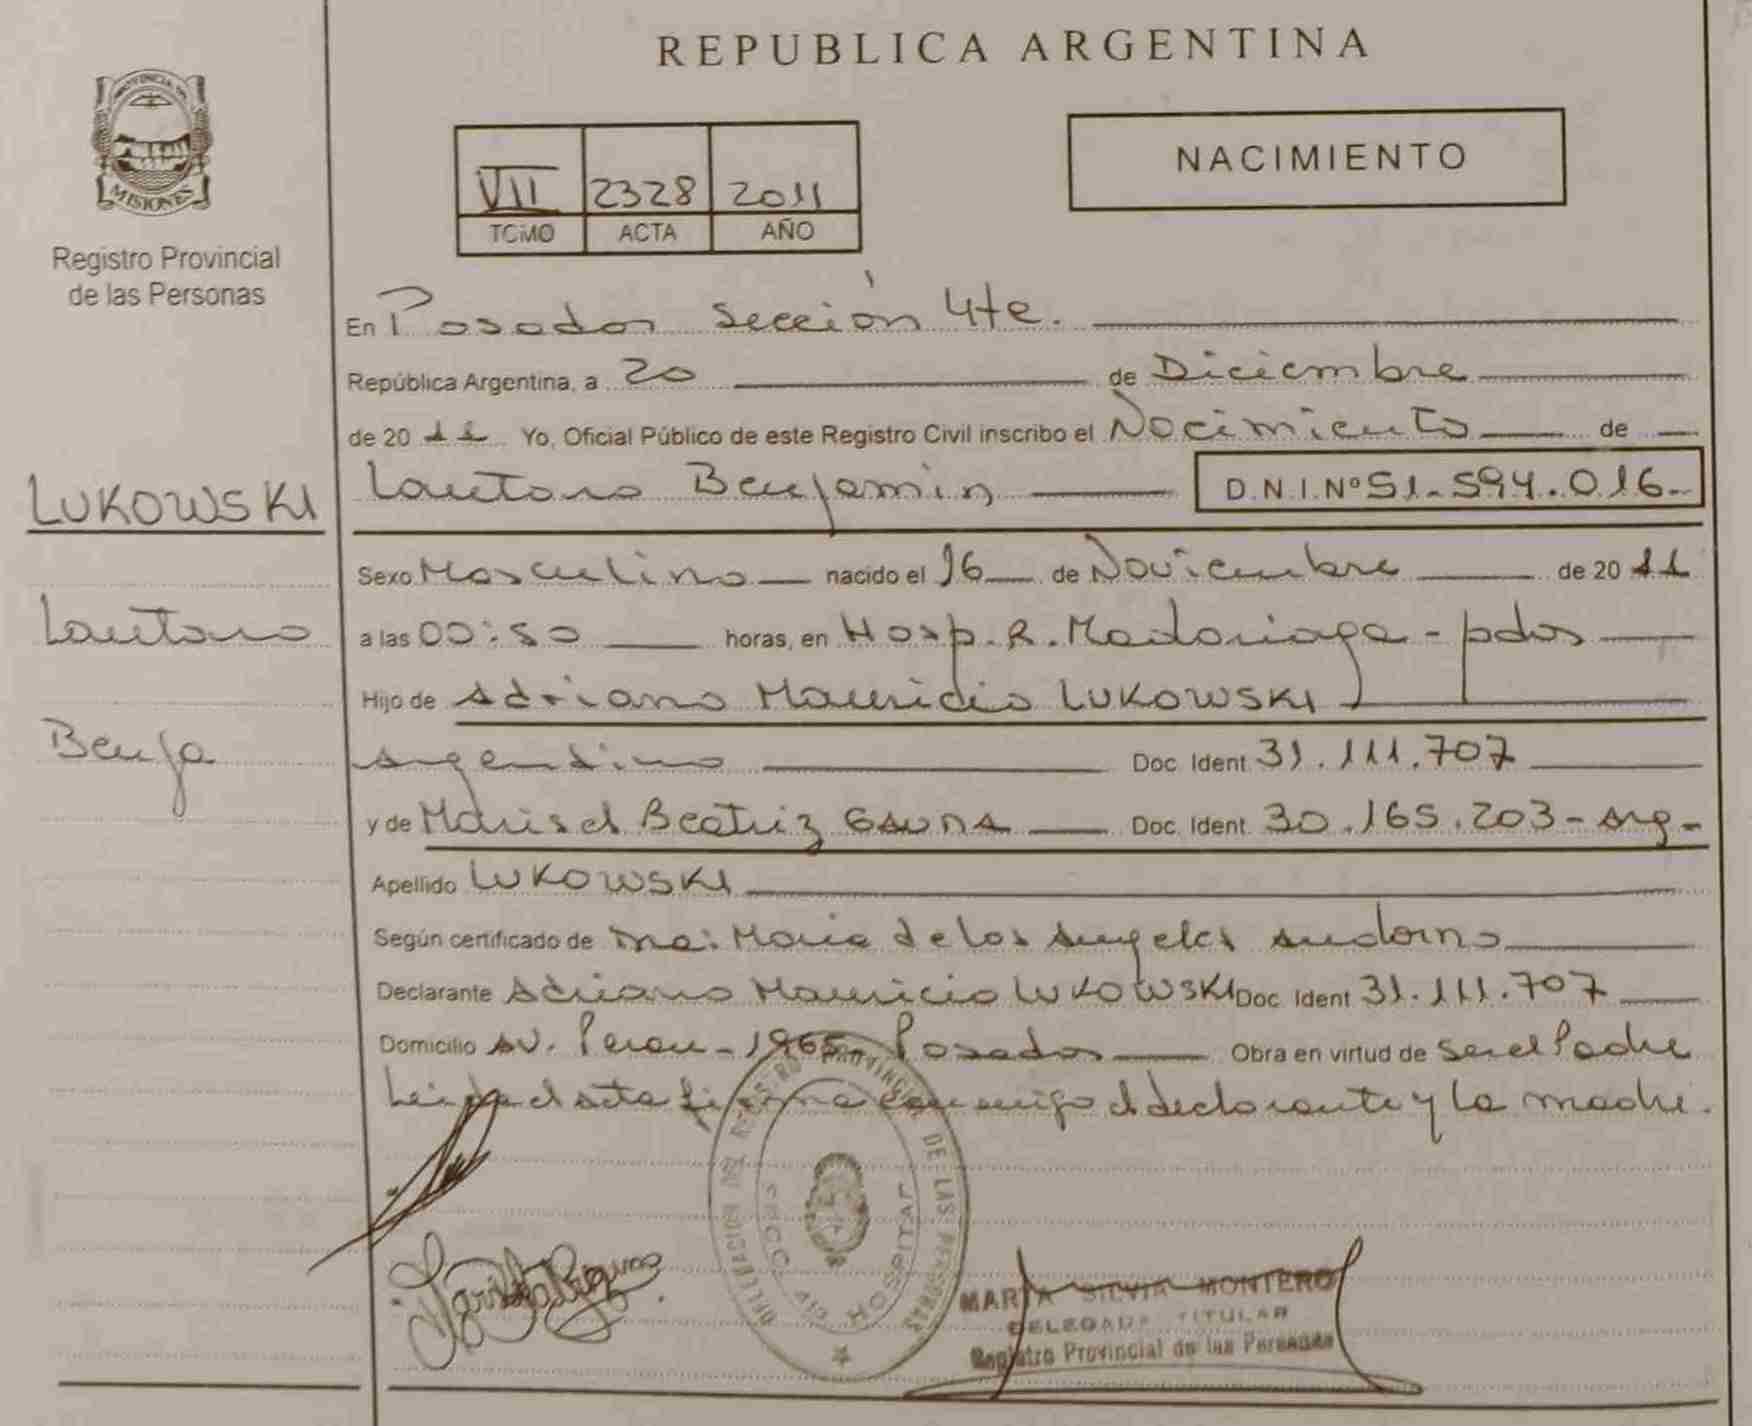 REPUBLICA ARGENTINA
PROVINCIA DE
MISIONES
Registro Provincial
de las Personas
VII 2328 2011
TOMO ACTA AÑO
NACIMIENTO
En Posadas sección 4te.
República Argentina, a 20 de Diciembre
de 2011 Yo, Oficial Público de este Registro Civil inscribo el Nacimiento de
Lautaro Benjamin D.N.I.Nº 51.594.016-
LUKOWSKI
Lautaro
Benja
Sexo Masculino nacido el 16 de Noviembre de 2011
a las 00:50 horas, en Hosp. R. Madariaga - pdas
Hijo de Adriano Mauricio LUKOWSKI
argentino Doc. Ident. 31.111.707
y de Marisel Beatriz GAUNA Doc. Ident. 30.165.203 - arg -
Apellido LUKOWSKI
Según certificado de Maria de los Angeles
Declarante Adriano Mauricio LUKOWSKI Doc. Ident 31.111.707
Domicilio Av. Peron - 1965 Posadas Obra en virtud de ser el Padre
Leida el acta firma conmigo el declarante y la madre.
DELEGACION DEL REGISTRO PROVINCIAL DE LAS PERSONAS
SECC. 4ta HOSPITAL
MARTA SILVIA MONTERO
DELEGADA TITULAR
Registro Provincial de las Personas